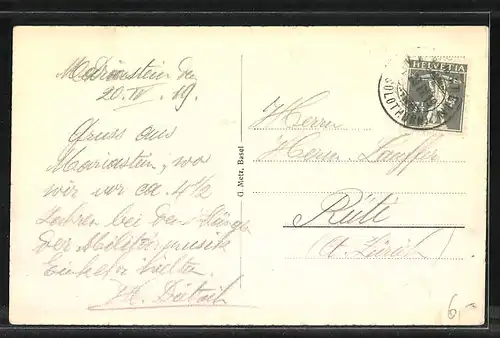 Mariastein den
20. IV. 19.
Gruss aus
Mariastein, wo
wir vor ca. 4 1/2
Jahren bei den Klängen
der Militärmusik
Einkehr hielten.
G. Metz, Basel
HELVETIA
SOLOTHURN
Herrn
Herm. Lauffer
Rüti
(Ct. Zürich)
6,-